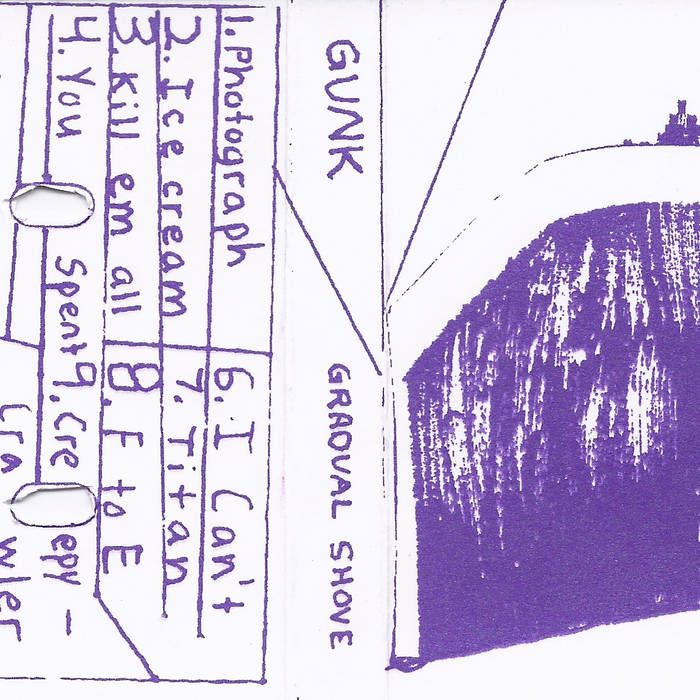 GUNK
GRADUAL SHOVE
1. Photograph
2. Ice cream
3. Kill em all
4. You
Spent
6. I Can't
7. Titan
8. F to E
9. Creepy -
Crawler